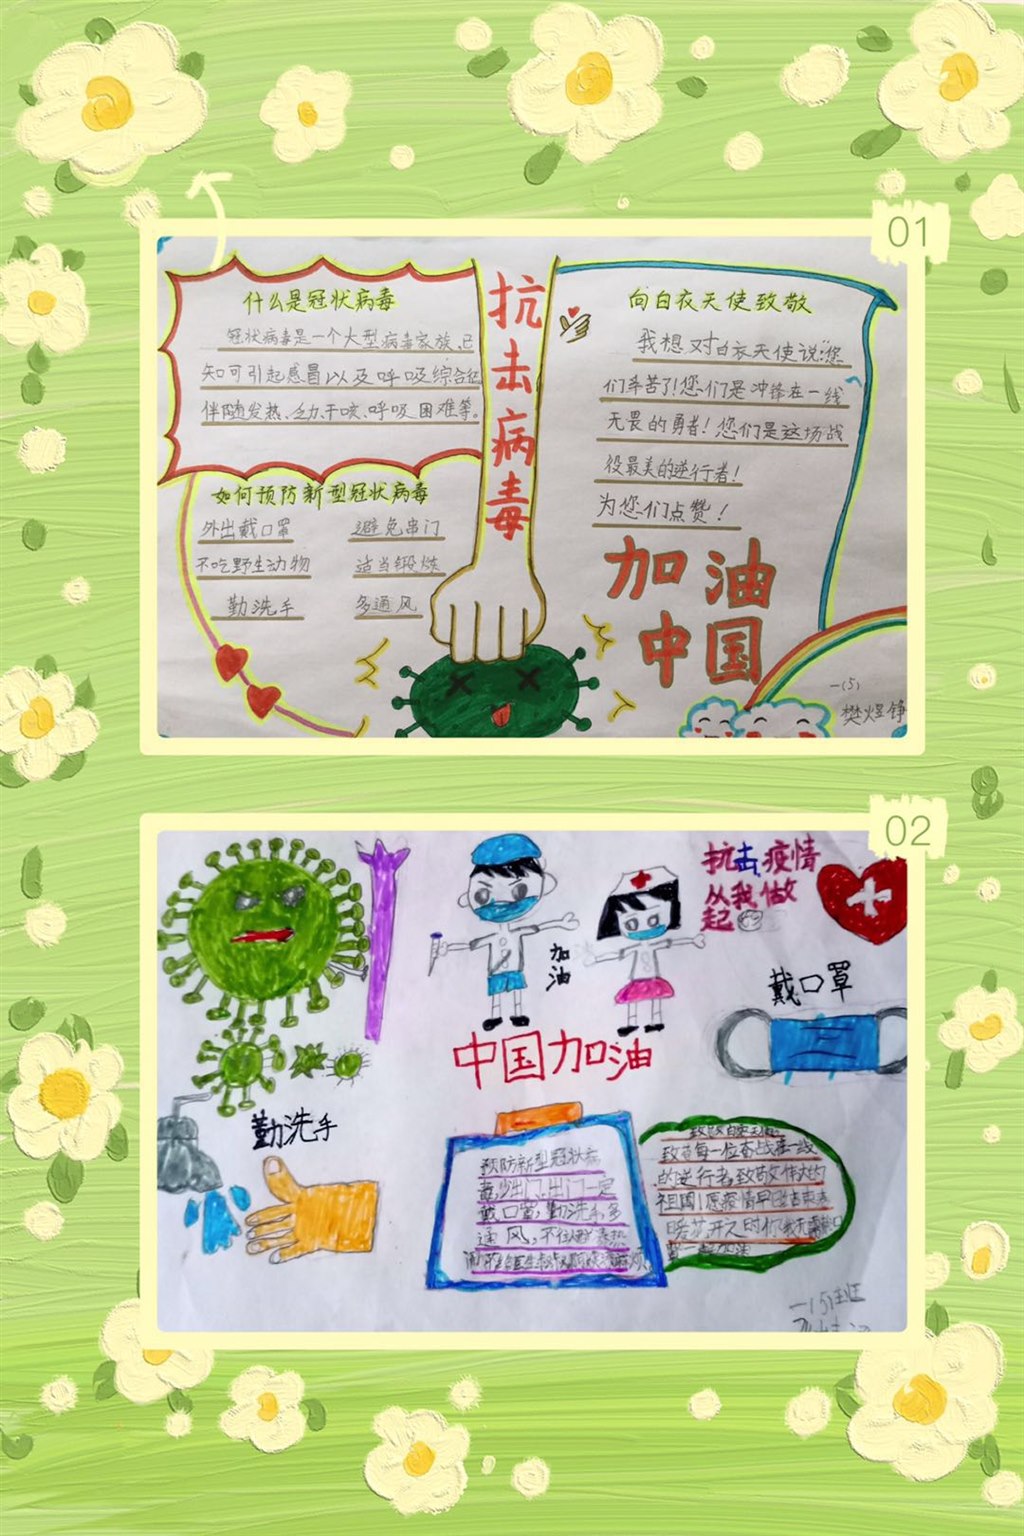 01
什么是冠状病毒
冠状病毒是一个大型病毒家族,已
知可引起感冒以及呼吸综合征
伴随发热、乏力、干咳、呼吸困难等。
如何预防新型冠状病毒
外出戴口罩 避免串门
不吃野生动物 适当锻炼
勤洗手 多通风
抗击病毒
向白衣天使致敬
我想对白衣天使说:您
们辛苦了!您们是冲锋在一线
无畏的勇者!您们是这场战
役最美的逆行者!
为您们点赞!
加油
中国
一(5)
樊煜铮
02
抗击疫情
从我做
起
加油
戴口罩
中国加油
勤洗手
预防新型冠状病
毒,少出门,出门一定
戴口罩,勤洗手,多
通风,不
致敬每一位奋战在一线
的逆行者,致敬伟大的
祖国,愿疫情早日结束春
暖花开之时你我
一起加油
一(5)班